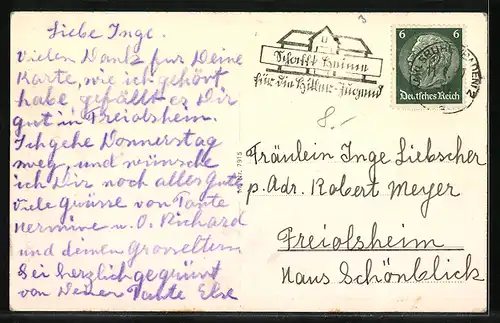 Liebe Inge.
Vielen Dank für Deine
Karte, wie ich gehört
habe, gefällt es Dir
gut in Freiolsheim.
Ich gehe Donnerstag
weg, und wünsche
ich Dir noch alles gute
viele Grüsse von Tante
Hermine u. O. Richard
und deinen Grosseltern
Sei herzlich gegrüsst
von Deiner Tante Else
3
Schafft Heime
für die Hitler-Jugend
6 6
Deutsches Reich
KARLSRUHE (BADEN) 2
8.-
Fräulein Inge Liebscher
p. Adr. Robert Meyer
Freiolsheim
Haus Schönblick
Nr. 7915